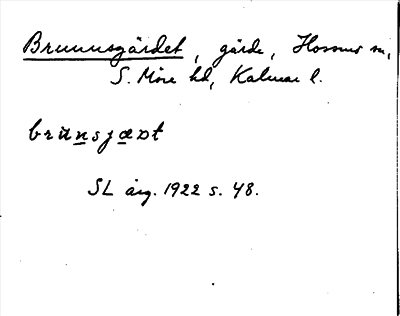 Brunnsgärdet, gärde, Hossmo sn,
S. Möre hd, Kalmar l.
brùnsjæɒt
SL årg. 1922 s. 48.